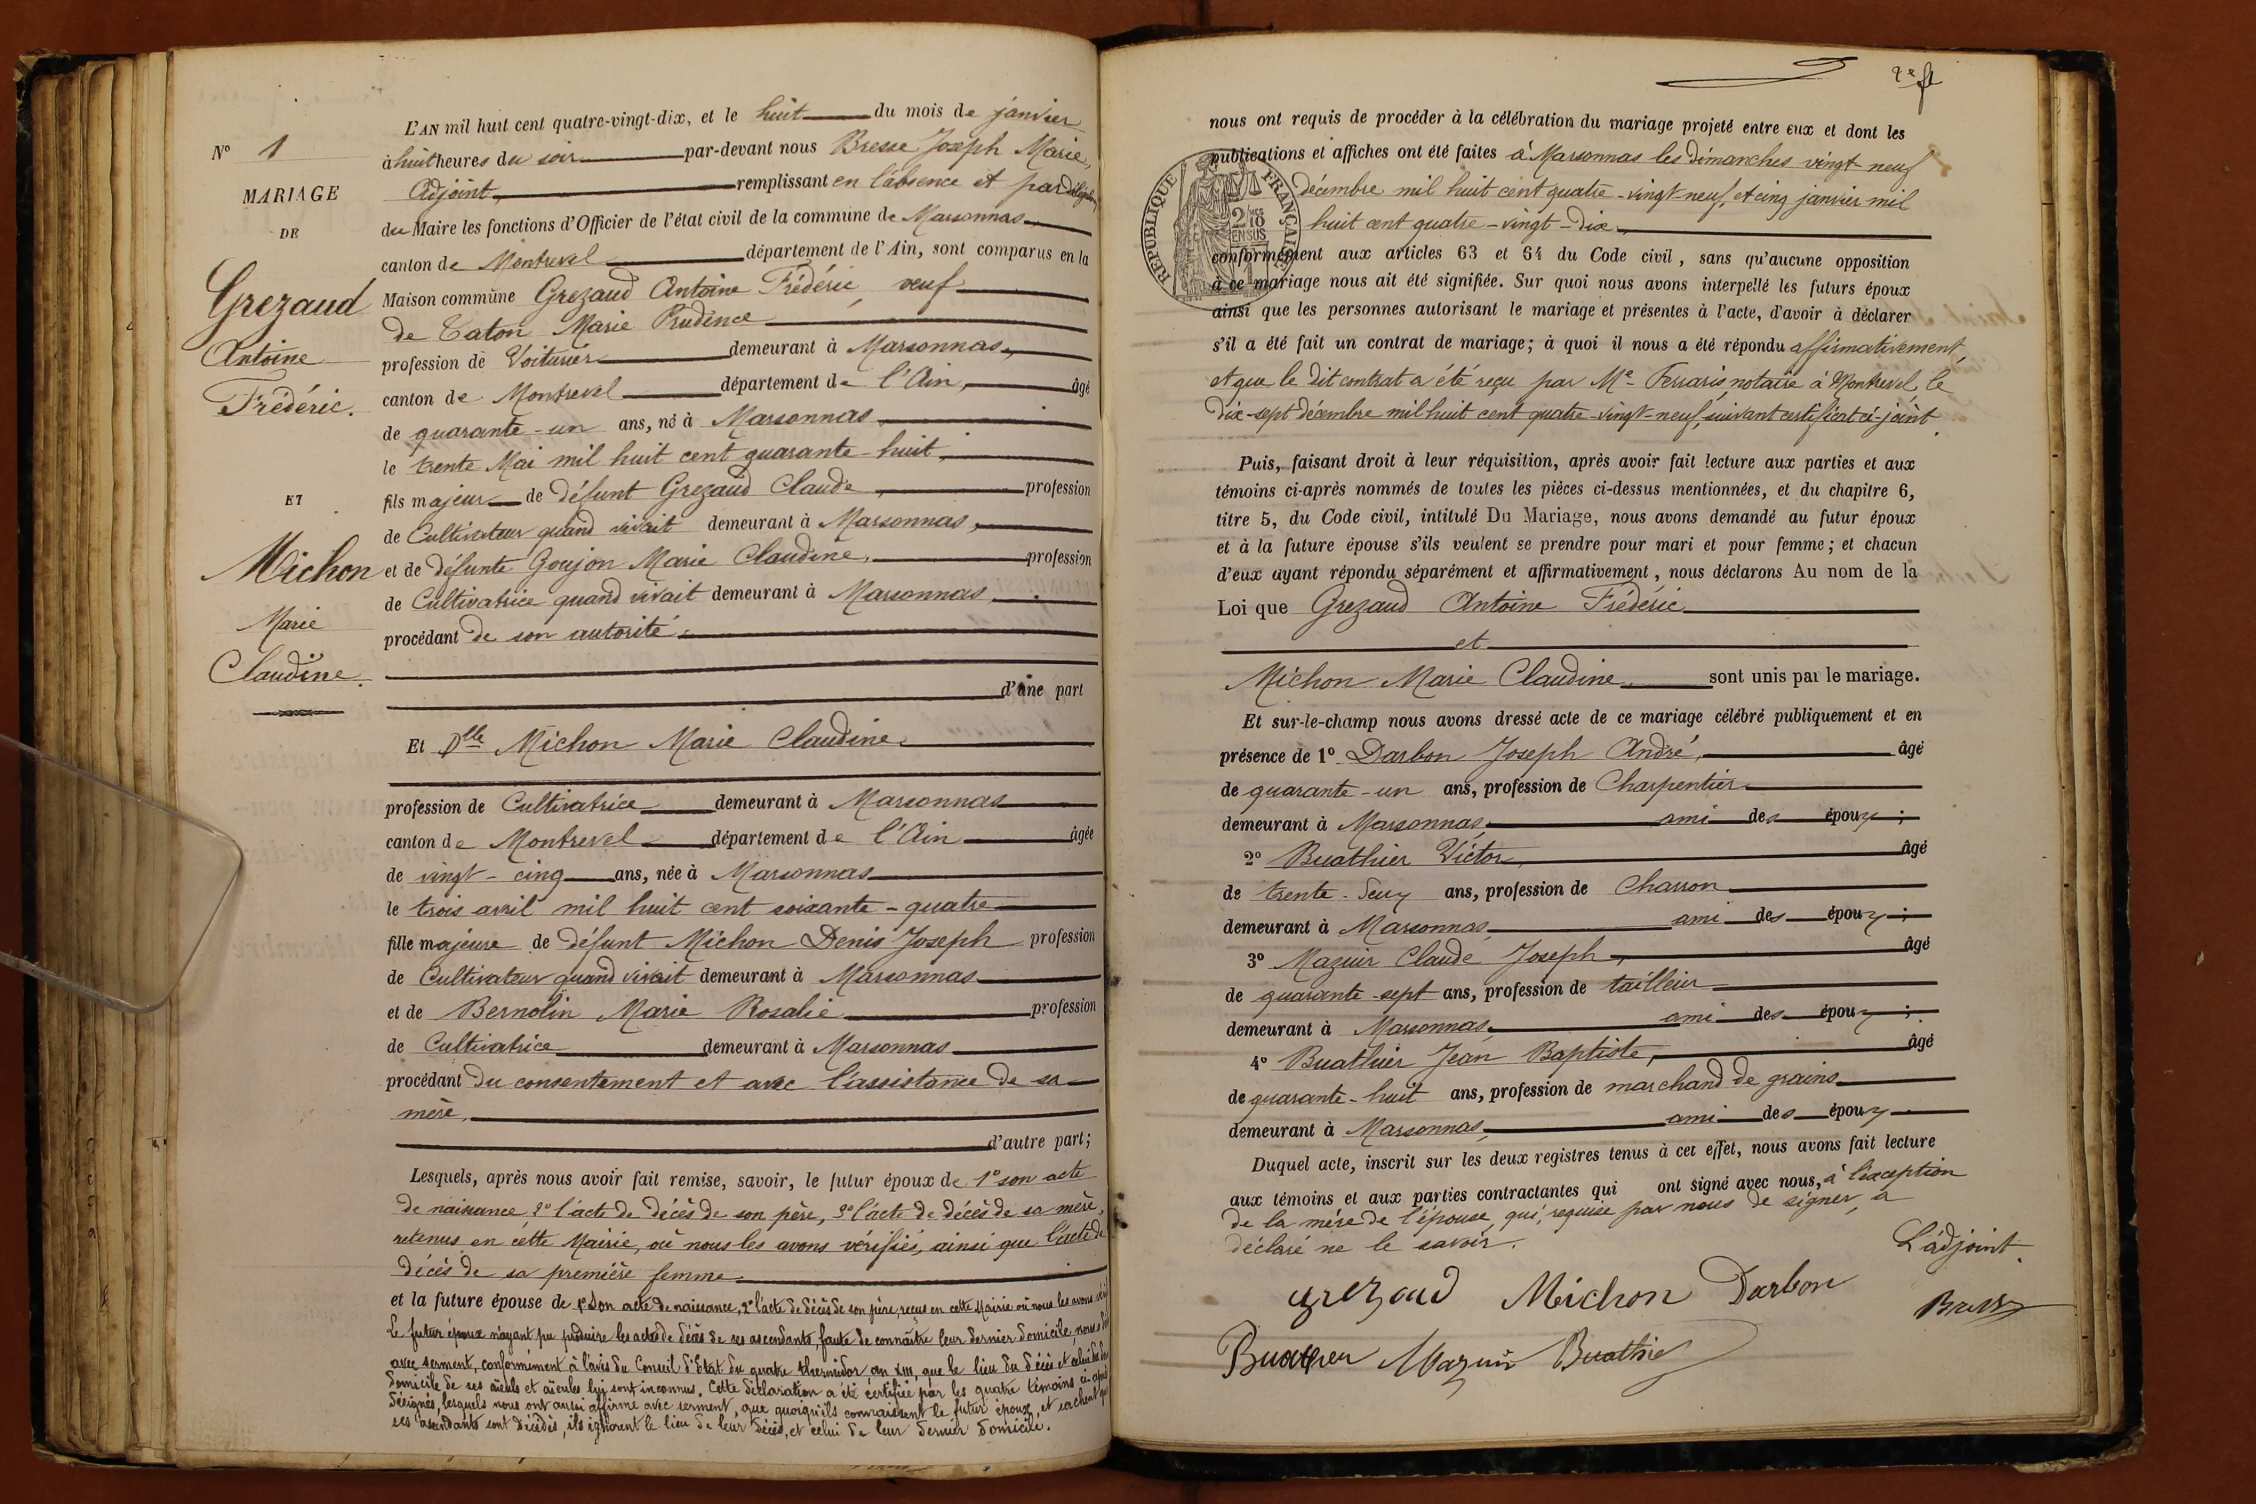 L'AN mil huit cent quatre-vingt-dix, et le huit du mois de janvier
à huit heures du soir par-devant nous Bresse Joseph Marie,
Adjoint, remplissant en l'absence et par délégation
du Maire les fonctions d'Officier de l'état civil de la commune de Marsonnas,
canton de Montrevel département de l'Ain, sont comparus en la
Maison commune Grezaud Antoine Frédéric, veuf
de Caton Marie Prudence
profession de Voiturier demeurant à Marsonnas,
canton de Montrevel département de l'Ain, âgé
de quarante-un ans, né à Marsonnas
le trente Mai mil huit cent quarante-huit,
fils majeur de défunt Grezaud Claude, profession
de Cultivateur quand vivait demeurant à Marsonnas,
et de défunte Goujon Marie Claudine, profession
de Cultivatrice quand vivait demeurant à Marsonnas,
procédant de son autorité
d'une part
Et Dlle Michon Marie Claudine
profession de Cultivatrice demeurant à Marsonnas
canton de Montrevel département de l'Ain âgée
de vingt-cinq ans, née à Marsonnas
le trois avril mil huit cent soixante-quatre
fille majeure de défunt Michon Denis Joseph profession
de Cultivateur quand vivait demeurant à Marsonnas
et de Bernolin Marie Rosalie profession
de Cultivatrice demeurant à Marsonnas
procédant du consentement et avec l'assistance de sa
mère,
d'autre part;
Lesquels, après nous avoir fait remise, savoir, le futur époux de 1º son acte
de naissance, 2º l'acte de décès de son père, 3º l'acte de décès de sa mère,
retenus en cette Mairie, où nous les avons vérifiés, ainsi que l'acte de
décès de sa première femme
et la future épouse de 1º Son acte de naissance, 2º l'acte de décès de son père, reçus en cette Mairie où nous les avons
Le futur époux n'ayant pu produire les actes de décès de ses ascendants, faute de connaître leur dernier domicile, nous
avec serment, conformément à l'avis du Conseil d'Etat du quatre thermidor an XIII, que le lieu du décès et celui du
domicile de ses aïeuls et aïeules lui sont inconnus. Cette déclaration a été certifiée par les quatre témoins ci-après
désignés, lesquels nous ont aussi affirmé avec serment, que quoiqu'ils connaissent le futur époux, et sachent que
ses ascendants sont décédés, ils ignorent le lieu de leur décès, et celui de leur dernier domicile.
Nº 1
MARIAGE
DE
Grezaud
Antoine
Frédéric.
ET
Michon
Marie
Claudine.
2e ft
nous ont requis de procéder à la célébration du mariage projeté entre eux et dont les
publications et affiches ont été faites à Marsonnas les dimanches vingt neuf
décembre mil huit cent quatre-vingt-neuf, et cinq janvier mil
huit cent quatre-vingt-dix,
conformément aux articles 63 et 64 du Code civil, sans qu'aucune opposition
à ce mariage nous ait été signifiée. Sur quoi nous avons interpellé les futurs époux
ainsi que les personnes autorisant le mariage et présentes à l'acte, d'avoir à déclarer
s'il a été fait un contrat de mariage; à quoi il nous a été répondu affirmativement,
et que le dit contrat a été reçu par Me Ferraris, notaire à Montrevel, le
dix-sept décembre mil huit cent quatre-vingt-neuf, suivant certificat ci-joint.
RÉPUBLIQUE FRANÇAISE
2/10
EN SUS
Puis, faisant droit à leur réquisition, après avoir fait lecture aux parties et aux
témoins ci-après nommés de toutes les pièces ci-dessus mentionnées, et du chapitre 6,
titre 5, du Code civil, intitulé Du Mariage, nous avons demandé au futur époux
et à la future épouse s'ils veulent se prendre pour mari et pour femme; et chacun
d'eux ayant répondu séparément et affirmativement, nous déclarons Au nom de la
Loi que Grezaud Antoine Frédéric
et
Michon Marie Claudine sont unis par le mariage.
Et sur-le-champ nous avons dressé acte de ce mariage célébré publiquement et en
présence de 1º Darbon Joseph André, âgé
de quarante-un ans, profession de Charpentier
demeurant à Marsonnas, ami des époux;
2º Buathier Victor âgé
de trente-deux ans, profession de Charron
demeurant à Marsonnas, ami des époux;
3º Mazuir Claude Joseph, âgé
de quarante-sept ans, profession de tailleur
demeurant à Marsonnas, ami des époux;
4º Buathier Jean Baptiste, âgé
de quarante-huit ans, profession de marchand de grains
demeurant à Marsonnas, ami des époux
Duquel acte, inscrit sur les deux registres tenus à cet effet, nous avons fait lecture
aux témoins et aux parties contractantes qui ont signé avec nous, à l'exception
de la mère de l'épouse, qui, requise par nous de signer, a
déclaré ne le savoir.
L'adjoint.
Grezaud Michon Darbon
Bresse
Buathier Mazuir Buathier